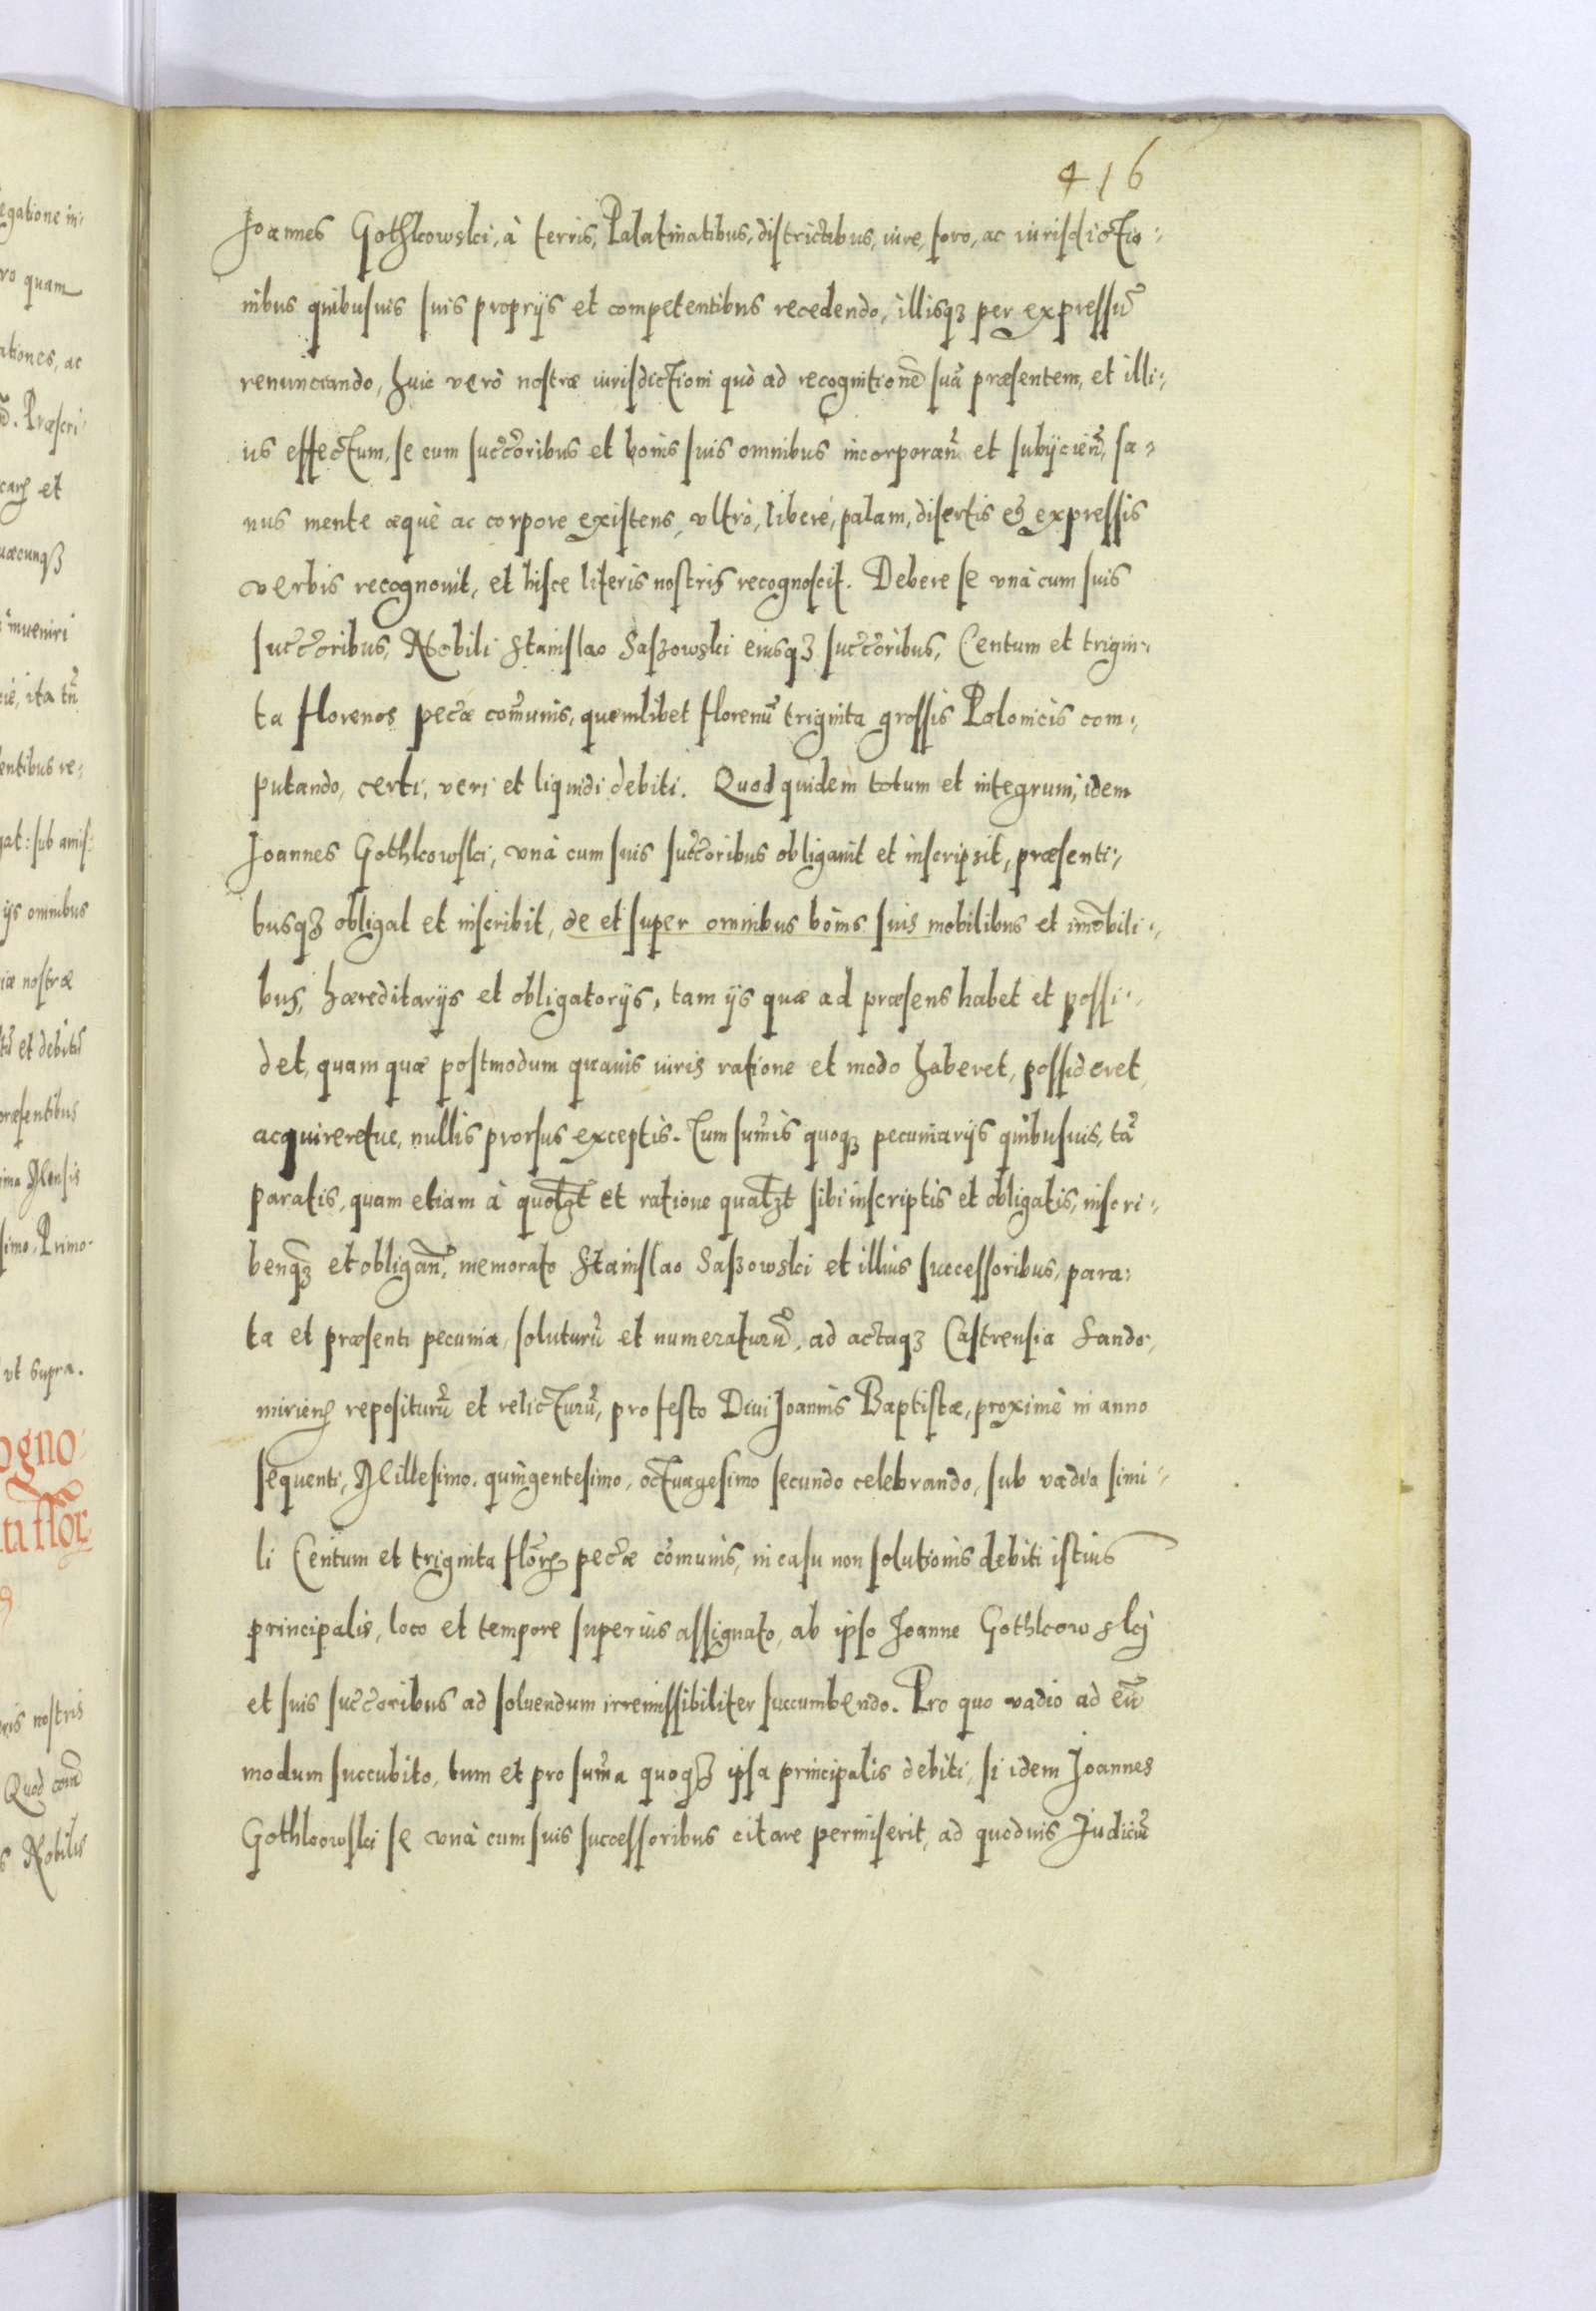 416
Joannes Gothkowski, à terris, Palatinatibus, districtibus, iure, foro, ac iurisdictio-
nibus quibusuis suis proprijs et competentibus recedendo, illisqȝ per expressũ
renunciando, huic verò nostræ iurisdictioni quò ad recognitionẽ suã præsentem, et illi-
us effectum, se cum succ̃oribus et bonis suis omnibus incorporañ et subijcieñ, sa-
nus mente æquè ac corpore existens, vltrò, liberè, palam, disertis & expressis
verbis recognouit, et hisce literis nostris recognoscit. Debere se vnà cum suis
succ̃oribus, Nobili Stanislao Saszowski eiusqȝ succ̃oribus, Centum et trigin-
ta florenos pec̃æ com̃unis, quemlibet florenũ triginta grossis Polonicis com-
putando, certi, veri et liquidi debiti. Quod quidem totum et integrum, idem
Joannes Gothkowski, vnà cum suis succ̃oribus obligauit et inscripsit, præsenti-
busqȝ obligat et inscribit, de et super omnibus bonis suis mobilibus et im̃obili-
bus, hæreditarijs et obligatorijs, tam ijs quæ ad præsens habet et possi-
det, quam quæ postmodum quauis iuris ratione et modo haberet, possideret,
acquireretue, nullis prorsus exceptis. Tum sum̃is quoqȝ pecuniarijs quibusuis, tã
paratis, quam etiam à quoł̃ȝt et ratione quał̃ȝt sibi inscriptis et obligatis, inscri-
benqȝ et obligañ, memorato Stanislao Saszowski et illius successoribus, para-
ta et præsenti pecunia, soluturũ et numeraturũ, ad actaqȝ Castrensia Sando-
mirieñ repositurũ et relicturũ, pro festo Diui Joannis Baptistæ, proximè in anno
sequenti, Millesimo, quingentesimo, octuagesimo secundo celebrando, sub vadio simi-
li Centum et triginta flor̃ pec̃æ com̃unis, in casu non solutionis debiti istius
principalis, loco et tempore superius assignato, ab ipso Joanne Gothkowskj
et suis succ̃oribus ad soluendum irremissibiliter succumbendo. Pro quo vadio ad eũ
modum succubito, tum et pro sum̃a quoqȝ ipsa principalis debiti, si idem Joannes
Gothkowski se vnà cum suis successoribus citare permiserit, ad quoduis Judiciũ